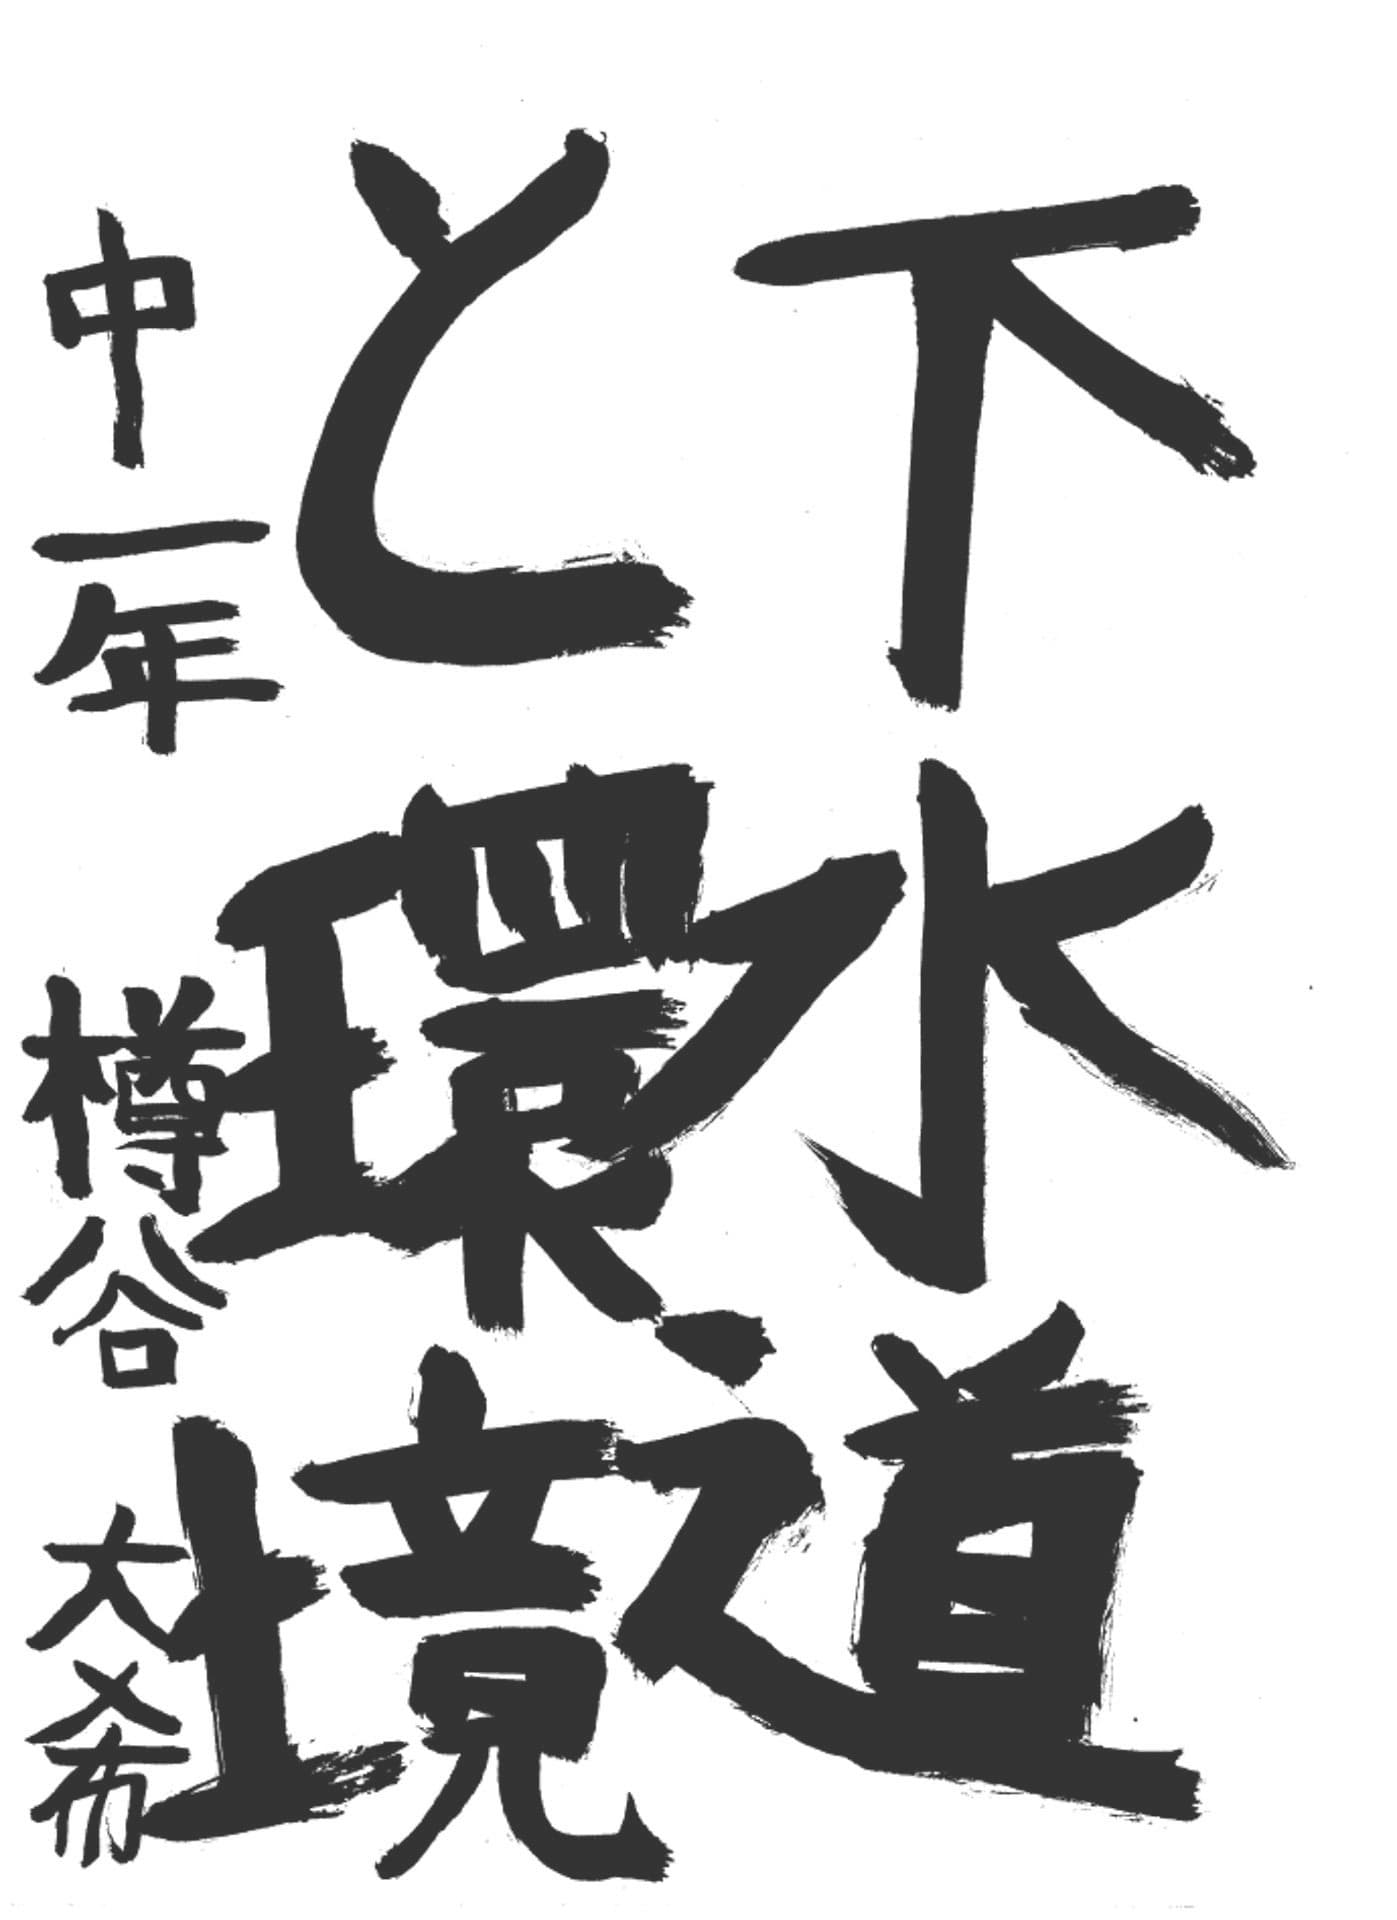 下水道
と環境
中一年 樽谷大希